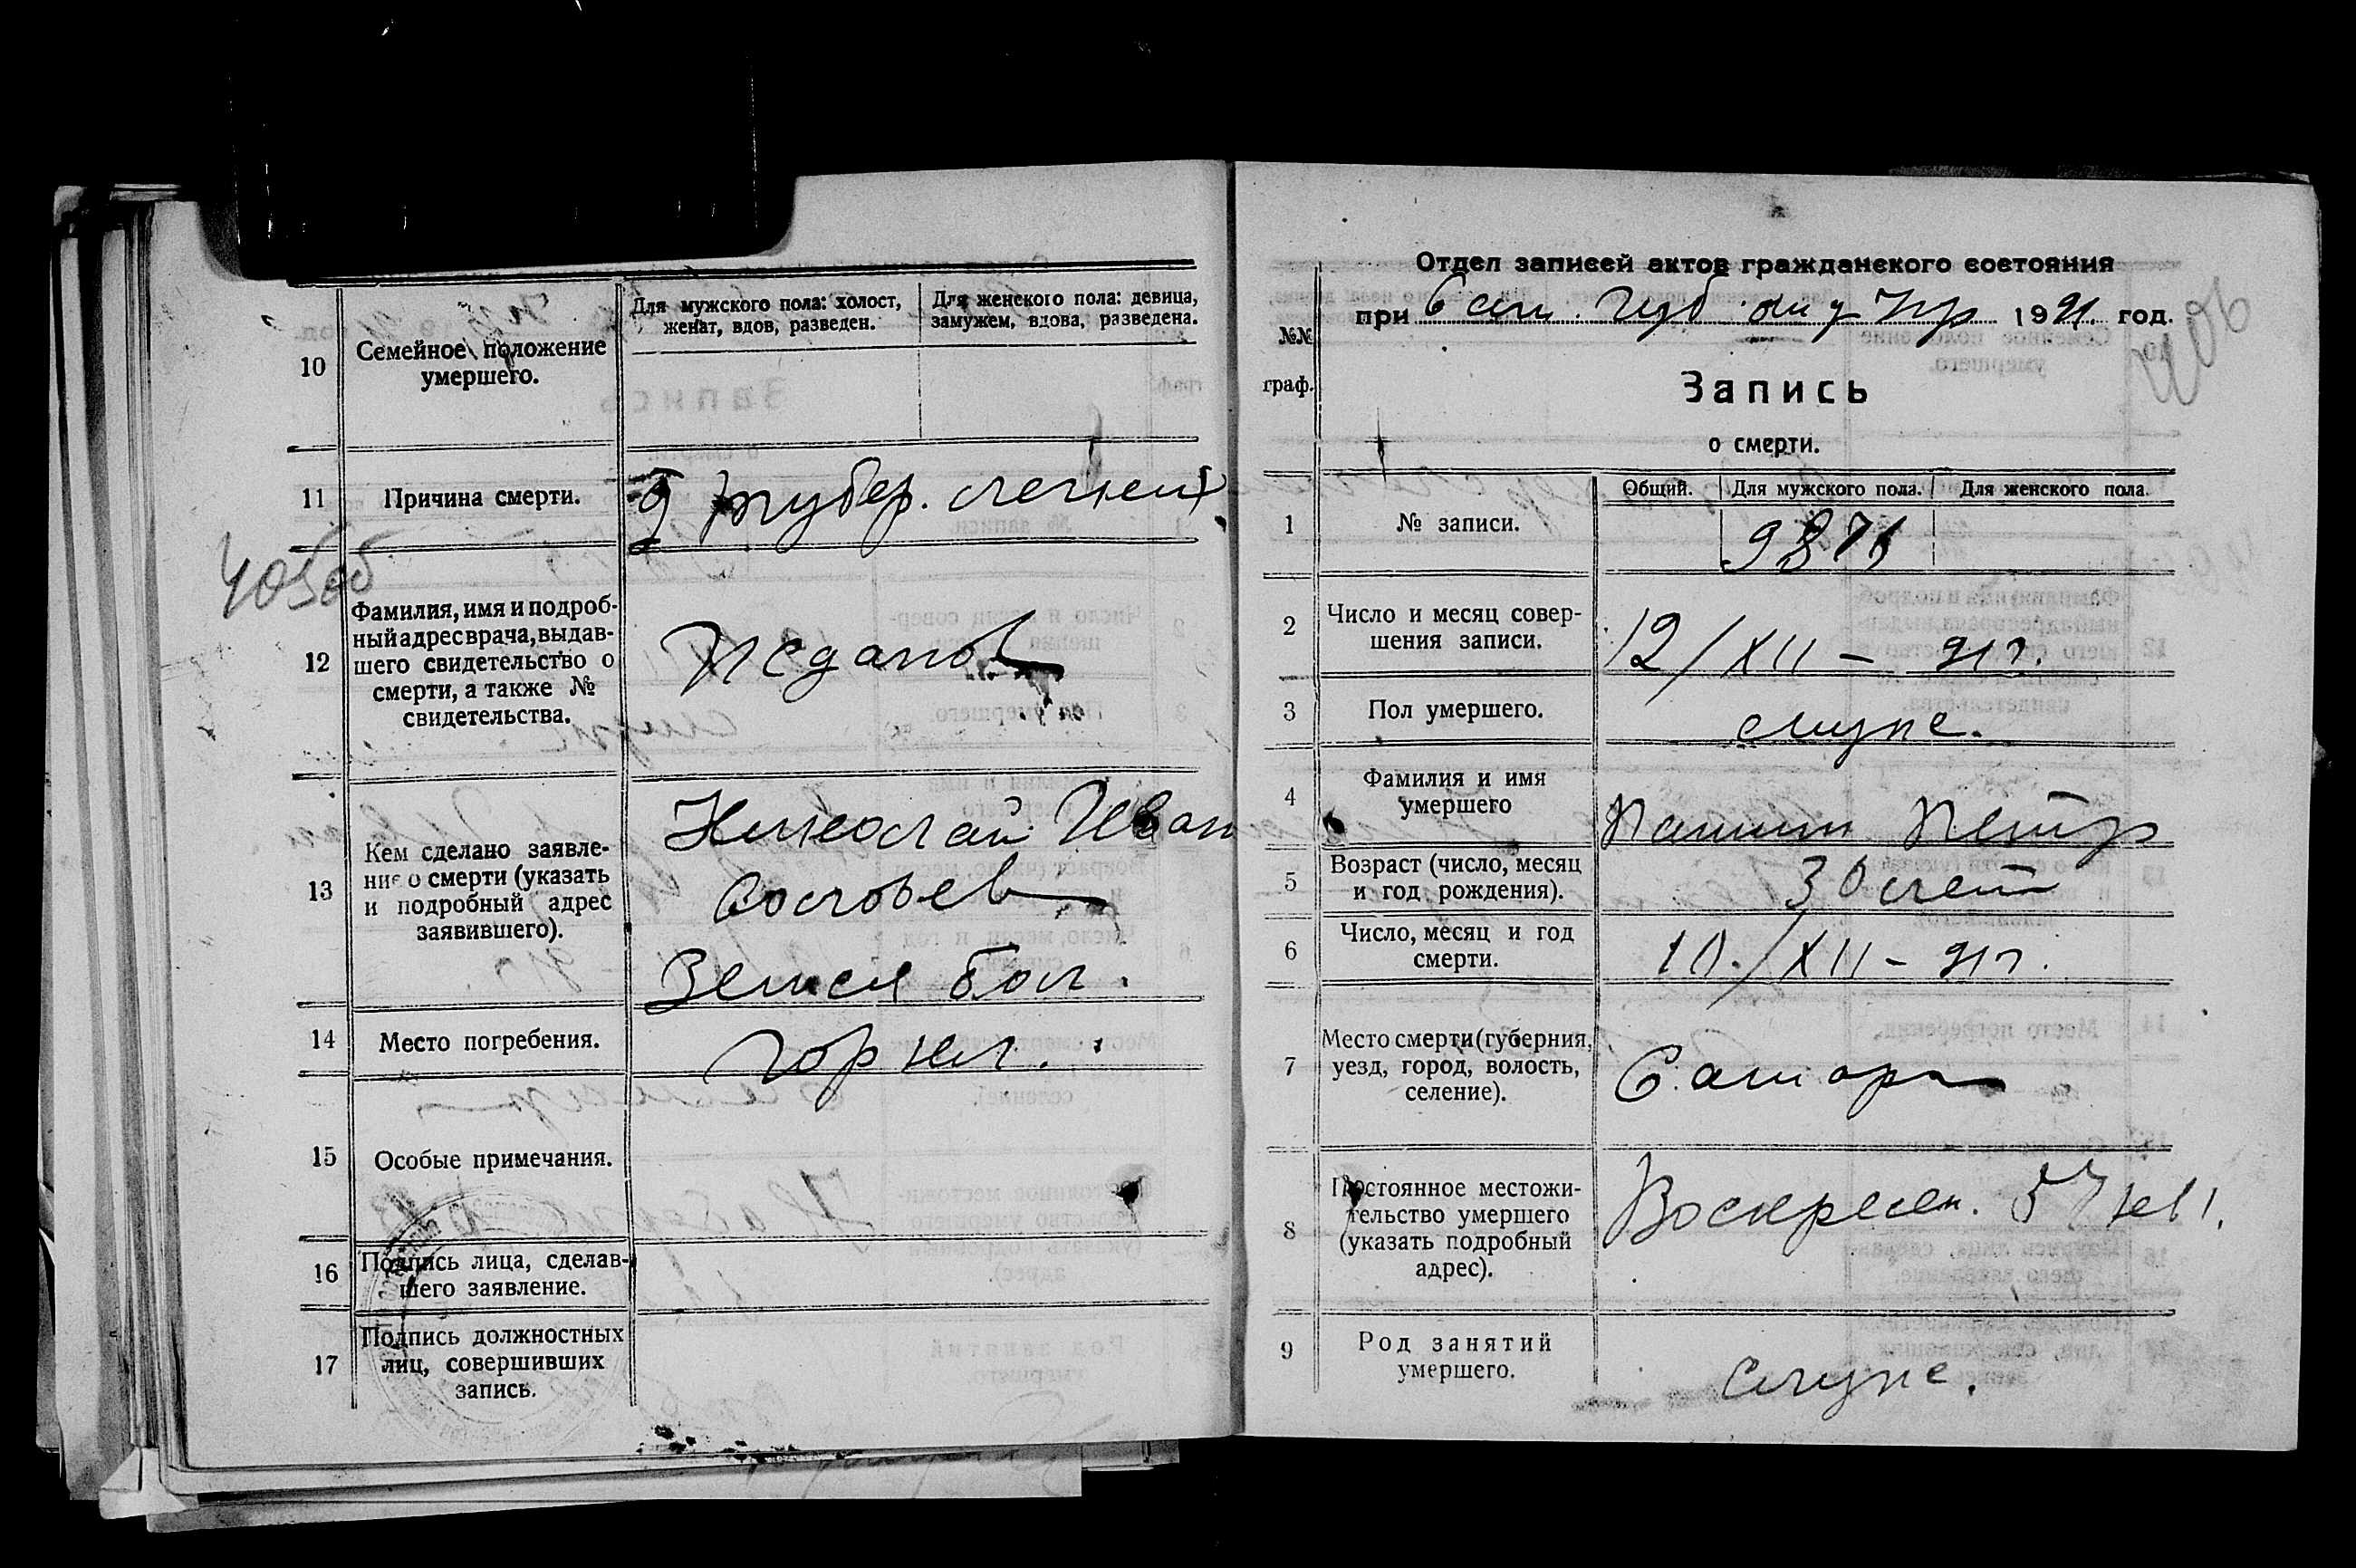 10
Семейное положение
умершего.
Для мужского пола: холост,
женат, вдов, разведен.
Для женского пола: девица,
замужем, вдова, разведена.
11
Причина смерти.
тубер. легких
12
Фамилия, имя и подроб-
ный адрес врача, выдав-
шего свидетельство о
смерти, а также №
свидетельства.
13
Кем сделано заявле-
ние о смерти (указать
и подробный адрес
заявившего).
Николай Иван
Соловьев
Земск бол.
14
Место погребения.
Гор кл.
15
Особые примечания.
16
Подпись лица, сделав-
шего заявление.
17
Подпись должностных
лиц, совершивших
запись.
Отдел записей актов гражданского состояния
при Сам. Губ. Упр 1921 год.
№№
граф.
Запись
о смерти.
1
№ записи.
Общий.
Для мужского пола.
Для женского пола.
2
Число и месяц совер-
шения записи.
12/XII – 21 г.
3
Пол умершего.
муж.
4
Фамилия и имя
умершего
Петр
5
Возраст (число, месяц
и год рождения).
30 лет
6
Число, месяц и год
смерти.
10/XII – 21 г.
7
Место смерти (губерния,
уезд, город, волость,
селение).
Самара
8
Постоянное местожи-
тельство умершего
(указать подробный
адрес).
Воскресен. 57 кв 1.
9
Род занятий
умершего.
служ.